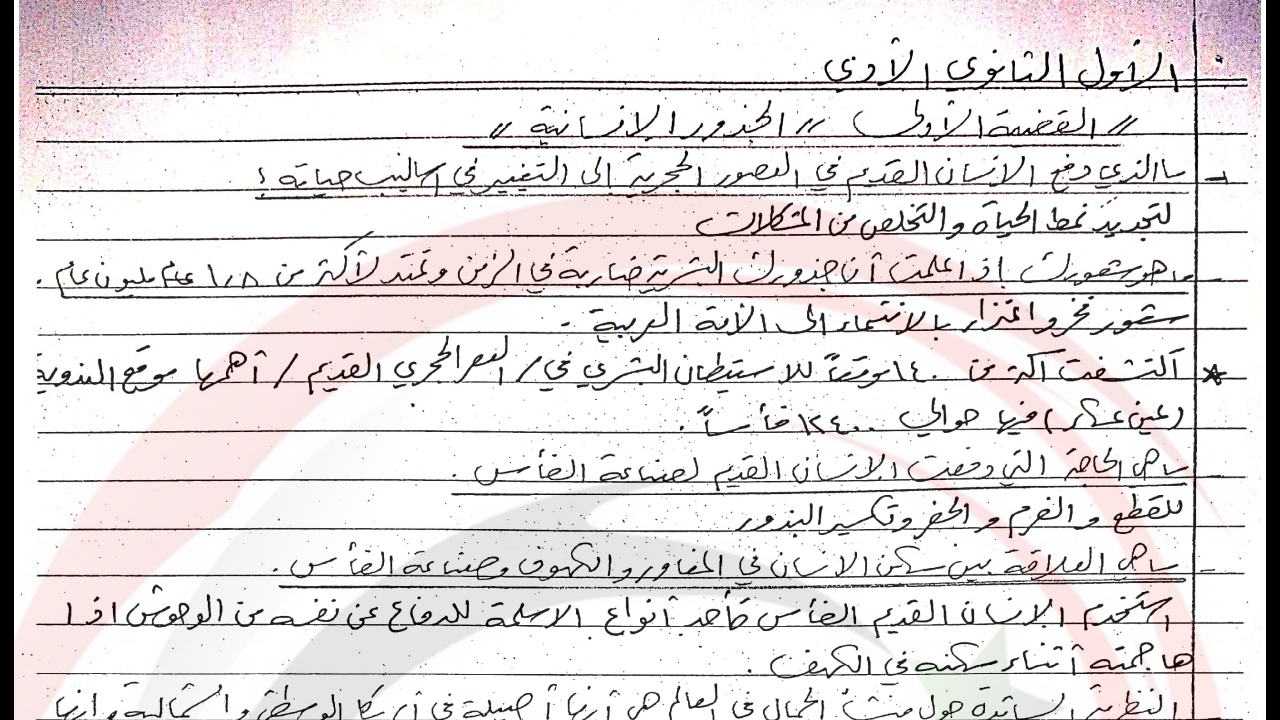 الأول الثانوي الأدبي
// القضية الأولى // الجذور الإنسانية //
- ما الذي دفع الإنسان القديم في العصور الحجرية إلى التغيير في أساليب حياته ؟
لتجديد نمط الحياة والتخلص من المشكلات
- ما هو شعورك إذا علمت أن جذورك البشرية ضاربة في الزمن وتمتد لأكثر من ١,٨ عام مليون عام .
شعور فخر واعتزاز بالانتماء إلى الأمة العربية .
* اكتشفت أكثر من ١٤٠ موقعاً للاستيطان البشري في / العصر الحجري القديم / أهمها موقع الندوية
(عين عسكر) فيها حوالي ١٢٤٠٠ فأساً .
- ما هي الحاجة التي دفعت الإنسان القديم لصناعة الفأس .
للقطع و الفرم و الحفر وتكسير البذور
- ما هي العلاقة بين سكن الإنسان في المغاور والكهوف وصناعة الفأس .
استخدم الإنسان القديم الفأس كأحد أنواع الأسلحة للدفاع عن نفسه من الوحوش اذا
هاجمته أثناء سكنه في الكهف .
النظرية السائدة حول منشأ الجمال في العالم هي أنها أصيلة في أمريكا الوسطى والشمالية وأنها